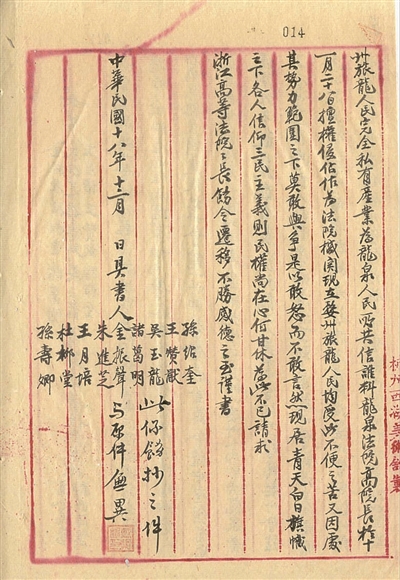 014
州旅龍人民完全私有產業為龍泉人民所共信誰料龍泉法院高院長於十
一月二十八日擅權侵佔作為法院機関現在婺州旅龍人民均受此不便之苦又因處
其勢力範圍之下莫敢與争是以敢怒而不敢言然現居青天白日旗幟
之下各人信仰三民主義則民權尚在心何甘休為此不已請求
浙江高等法院之長飭令遷移不勝感德之至謹書
中華民國十八年十二月 日具書人
孫佐奎
王贊猷
吳玉龍
諸葛明
金振聲
朱進芝
王月培
杜彬堂
孫壽卿
此係餙抄之件
与原件無異